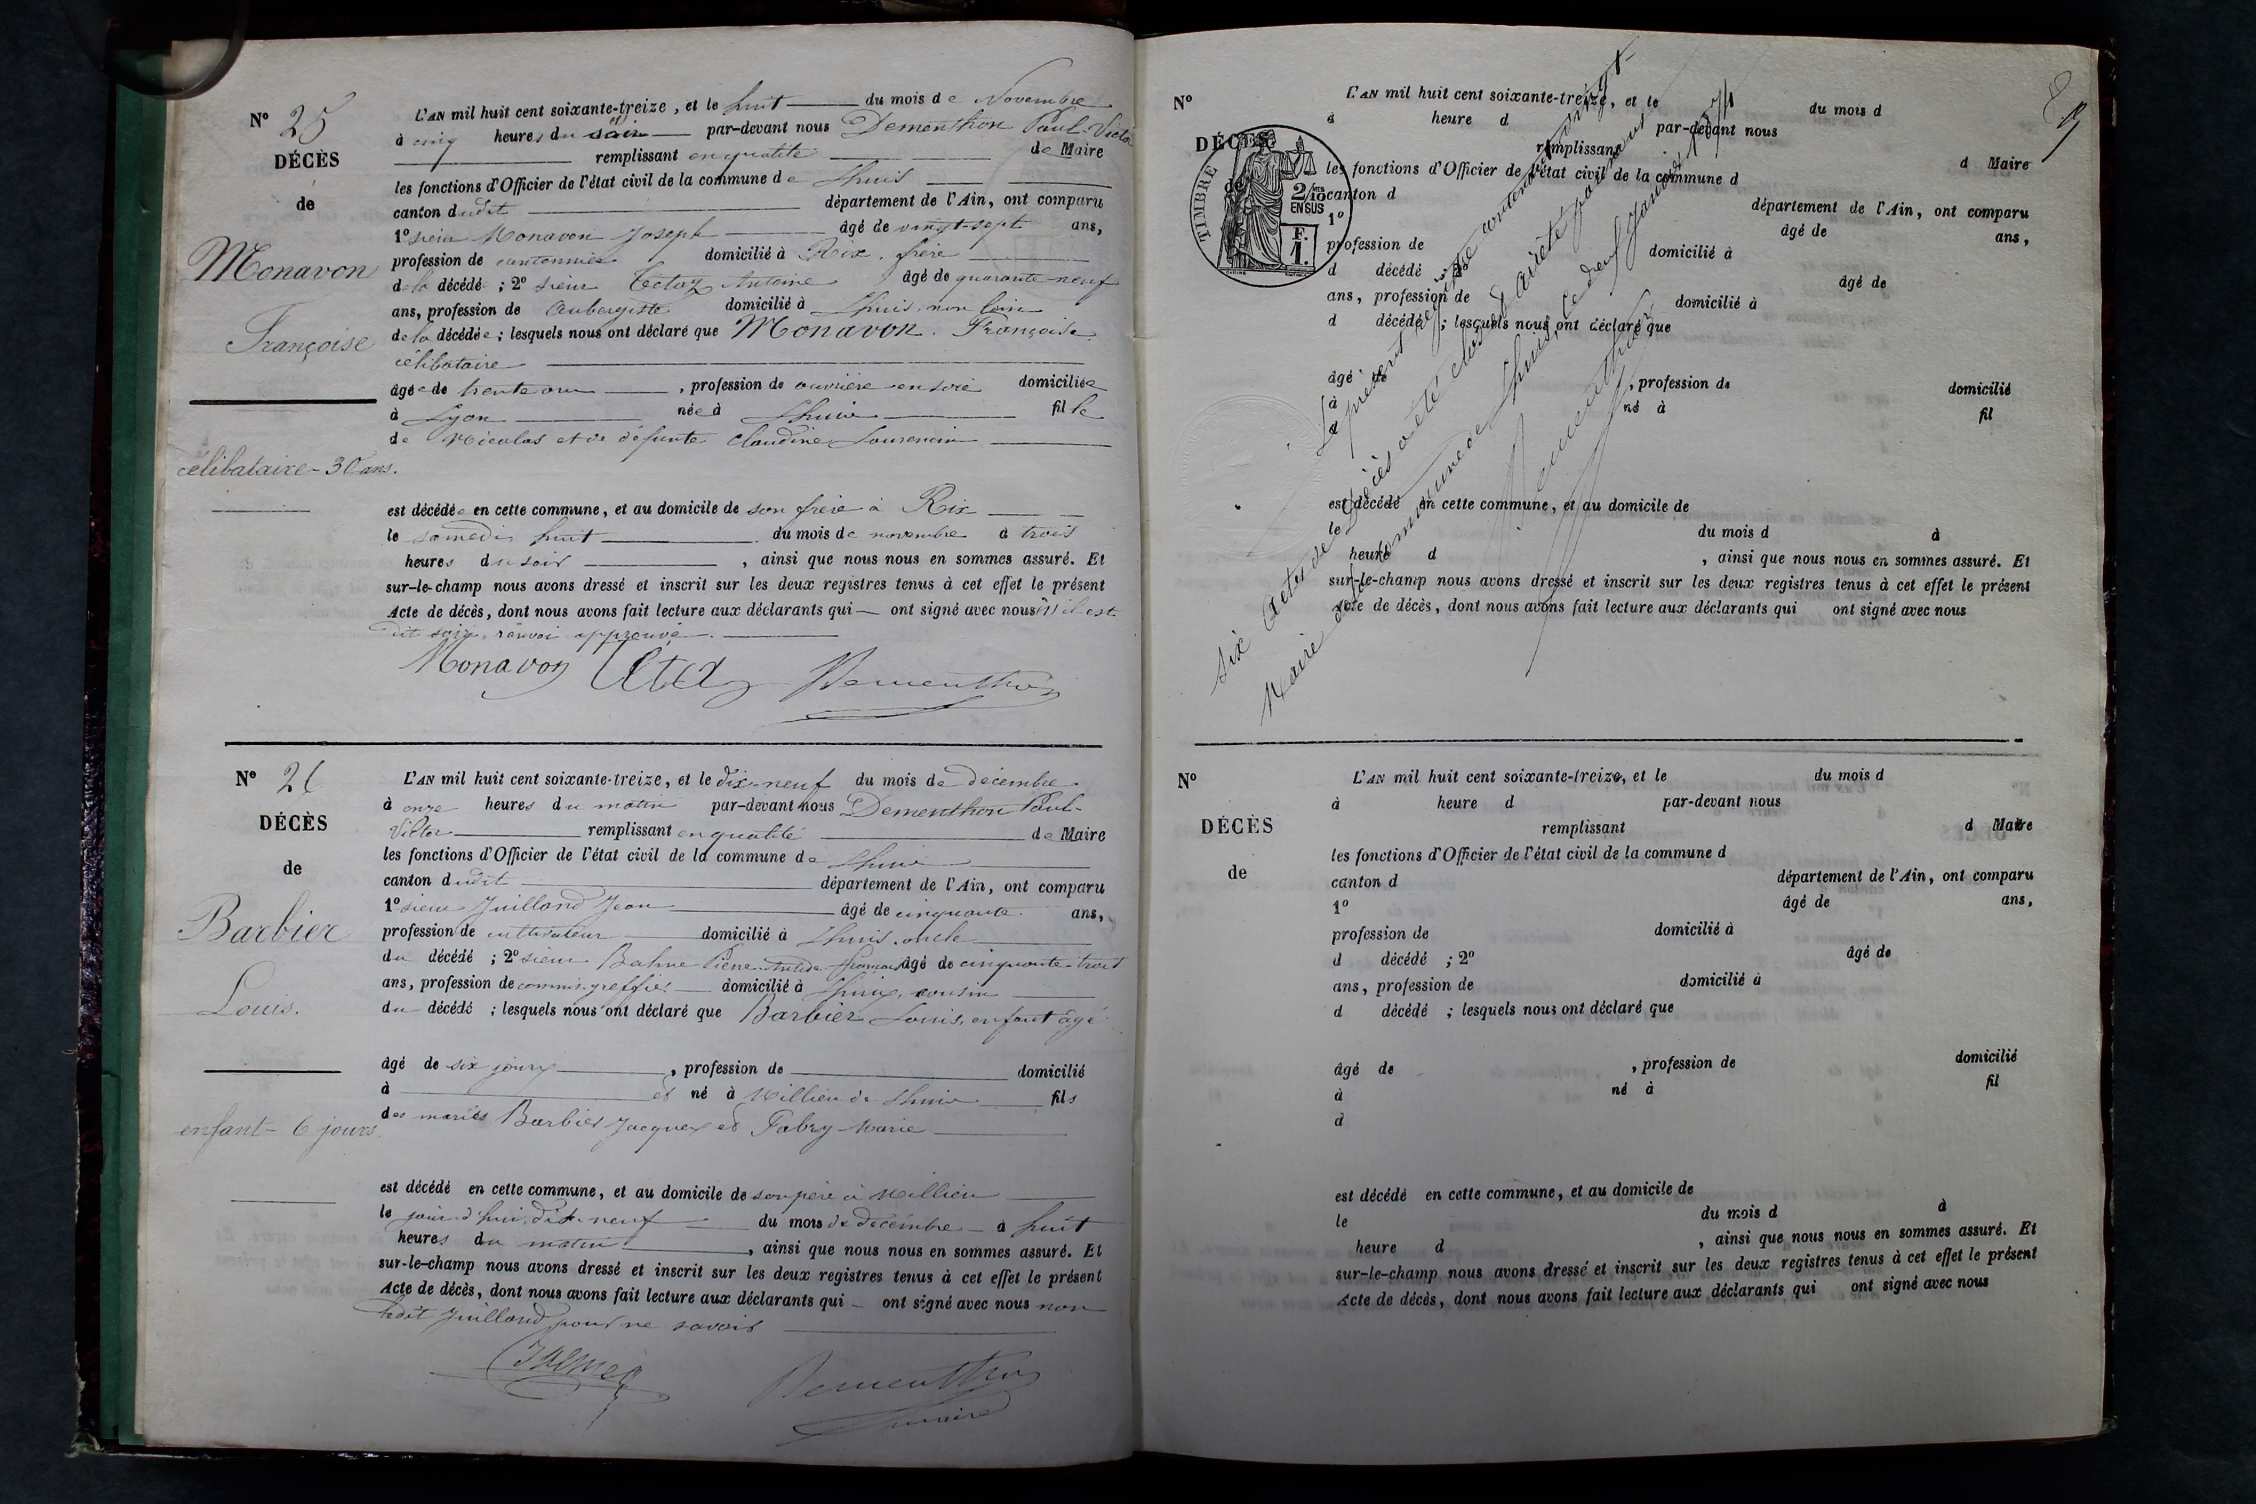 N° 25
DÉCÈS
de
Monavon
Françoise
célibataire - 30 ans.
L'AN mil huit cent soixante-treize, et le huit du mois de Novembre
à cinq heures du soir par-devant nous Dementhon Paul-Victor
remplissant en qualité de Maire
les fonctions d'Officier de l'état civil de la commune de Lhuis
canton dudit département de l'Ain, ont comparu
1° sieur Monavon Joseph âgé de vingt-sept ans,
profession de cantonnier domicilié à Rix, frère
de la décédé ; 2° sieur Tétaz Antoine âgé de quarante-neuf
ans, profession de Aubergiste domicilié à Lhuis, non
de la décédée ; lesquels nous ont déclaré que Monavon Françoise
célibataire
âgée de trente ans, profession de ouvrière en soie domiciliée
à Lyon née à Lhuis fille
de Nicolas et de défunte Claudine
est décédée en cette commune, et au domicile de son frère à Rix
le samedi huit du mois de novembre à trois
heures du soir, ainsi que nous nous en sommes assuré. Et
sur-le-champ nous avons dressé et inscrit sur les deux registres tenus à cet effet le présent
Acte de décès, dont nous avons fait lecture aux déclarants qui — ont signé avec nous
dit soir, renvoi approuvé.
Monavon Tétaz Dementhon
N° 26
DÉCÈS
de
Barbier
Louis.
enfant - 6 jours.
L'AN mil huit cent soixante-treize, et le dix-neuf du mois de décembre
à onze heures du matin par-devant nous Dementhon Paul-
Victor remplissant en qualité de Maire
les fonctions d'Officier de l'état civil de la commune de Lhuis
canton dudit département de l'Ain, ont comparu
1° sieur Juilland Jean âgé de cinquante ans,
profession de cultivateur domicilié à Lhuis, oncle
du décédé ; 2° sieur Balme Pierre François âgé de cinquante-trois
ans, profession de commis-greffier domicilié à Lhuis, cousin
du décédé ; lesquels nous ont déclaré que Barbier Louis, enfant âgé
âgé de six jours, profession de domicilié
à et né à Millieu de Lhuis fils
des mariés Barbier Jacques et Fabry Marie
est décédé en cette commune, et au domicile de son père à Millieu
le jourd'hui, dix-neuf du mois de décembre à huit
heures du matin, ainsi que nous nous en sommes assuré. Et
sur-le-champ nous avons dressé et inscrit sur les deux registres tenus à cet effet le présent
Acte de décès, dont nous avons fait lecture aux déclarants qui — ont signé avec nous non
ledit Juilland pour ne savoir
Balme Dementhon
maire
N°
DÉCÈS
de
TIMBRE
2/10 EN SUS
F.
1.
L'AN mil huit cent soixante-treize, et le du mois d
à heure d par-devant nous
remplissant d Maire
les fonctions d'Officier de l'état civil de la commune d
canton d département de l'Ain, ont comparu
1° âgé de ans,
profession de domicilié à
d décédé ; 2° âgé de
ans, profession de domicilié à
d décédé ; lesquels nous ont déclaré que
âgé de , profession de domicilié
à né à fil
d
est décédé en cette commune, et au domicile de
le du mois d à
heure d , ainsi que nous nous en sommes assuré. Et
sur-le-champ nous avons dressé et inscrit sur les deux registres tenus à cet effet le présent
Acte de décès, dont nous avons fait lecture aux déclarants qui ont signé avec nous
Le présent registre contenant vingt-
six Actes de Décès a été clos et arrêté par nous
Maire de la commune de Lhuis, le neuf Janvier 1874
Dementhon
N°
DÉCÈS
de
L'AN mil huit cent soixante-treize, et le du mois d
à heure d par-devant nous
remplissant d Maire
les fonctions d'Officier de l'état civil de la commune d
canton d département de l'Ain, ont comparu
1° âgé de ans,
profession de domicilié à
d décédé ; 2° âgé de
ans, profession de domicilié à
d décédé ; lesquels nous ont déclaré que
âgé de , profession de domicilié
à né à fil
d
est décédé en cette commune, et au domicile de
le du mois d à
heure d , ainsi que nous nous en sommes assuré. Et
sur-le-champ nous avons dressé et inscrit sur les deux registres tenus à cet effet le présent
Acte de décès, dont nous avons fait lecture aux déclarants qui ont signé avec nous